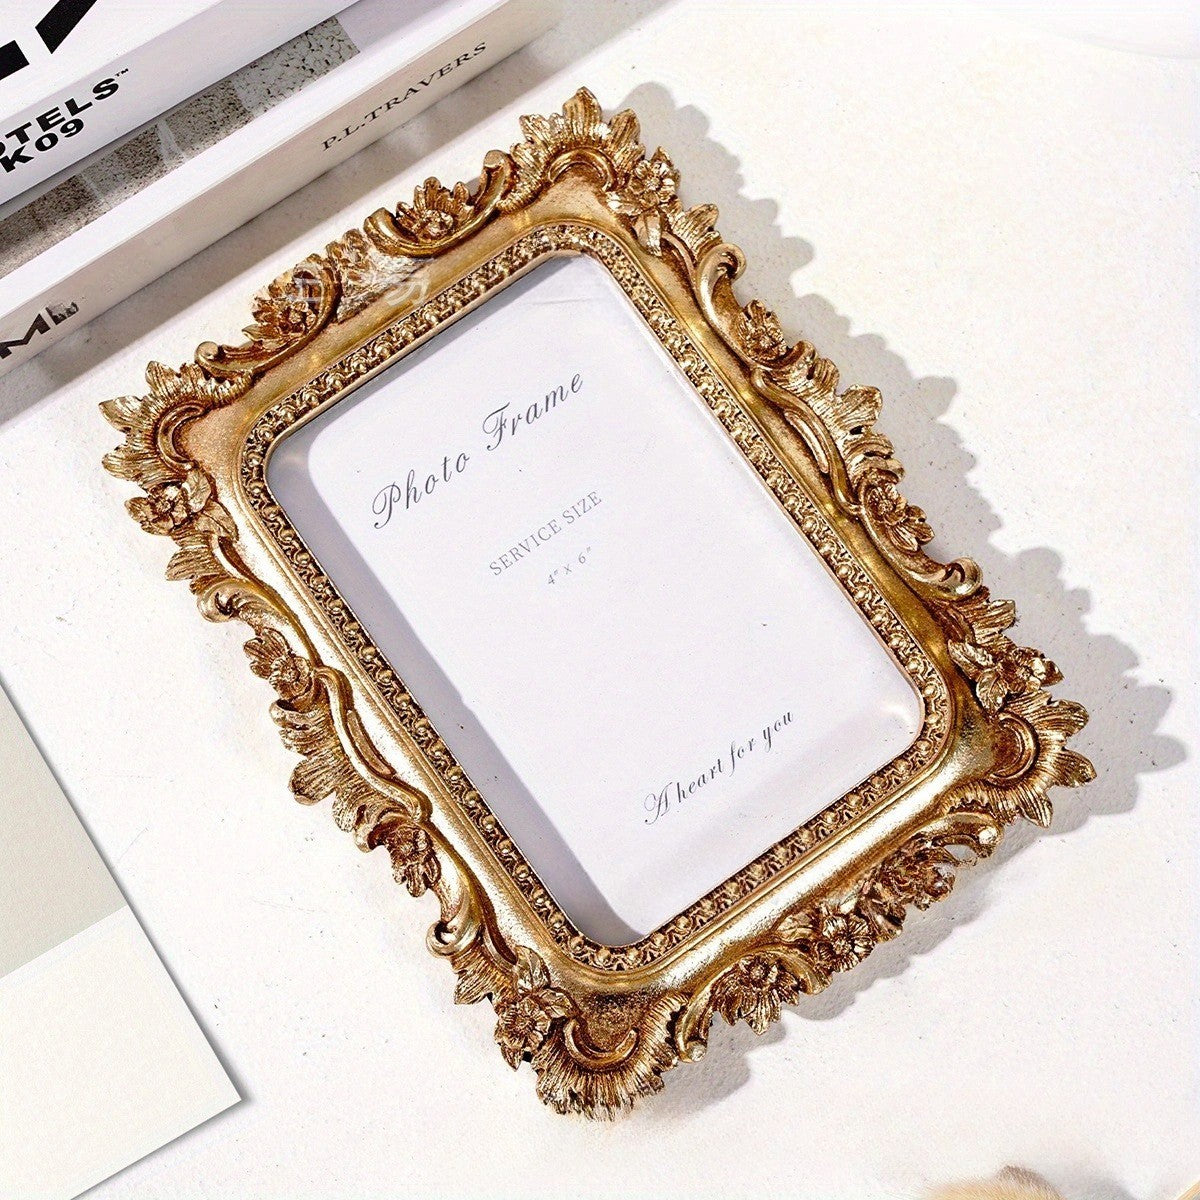 OTELS™
K09
P.L.TRAVERS
Photo Frame
SERVICE SIZE
4" x 6"
A heart for you